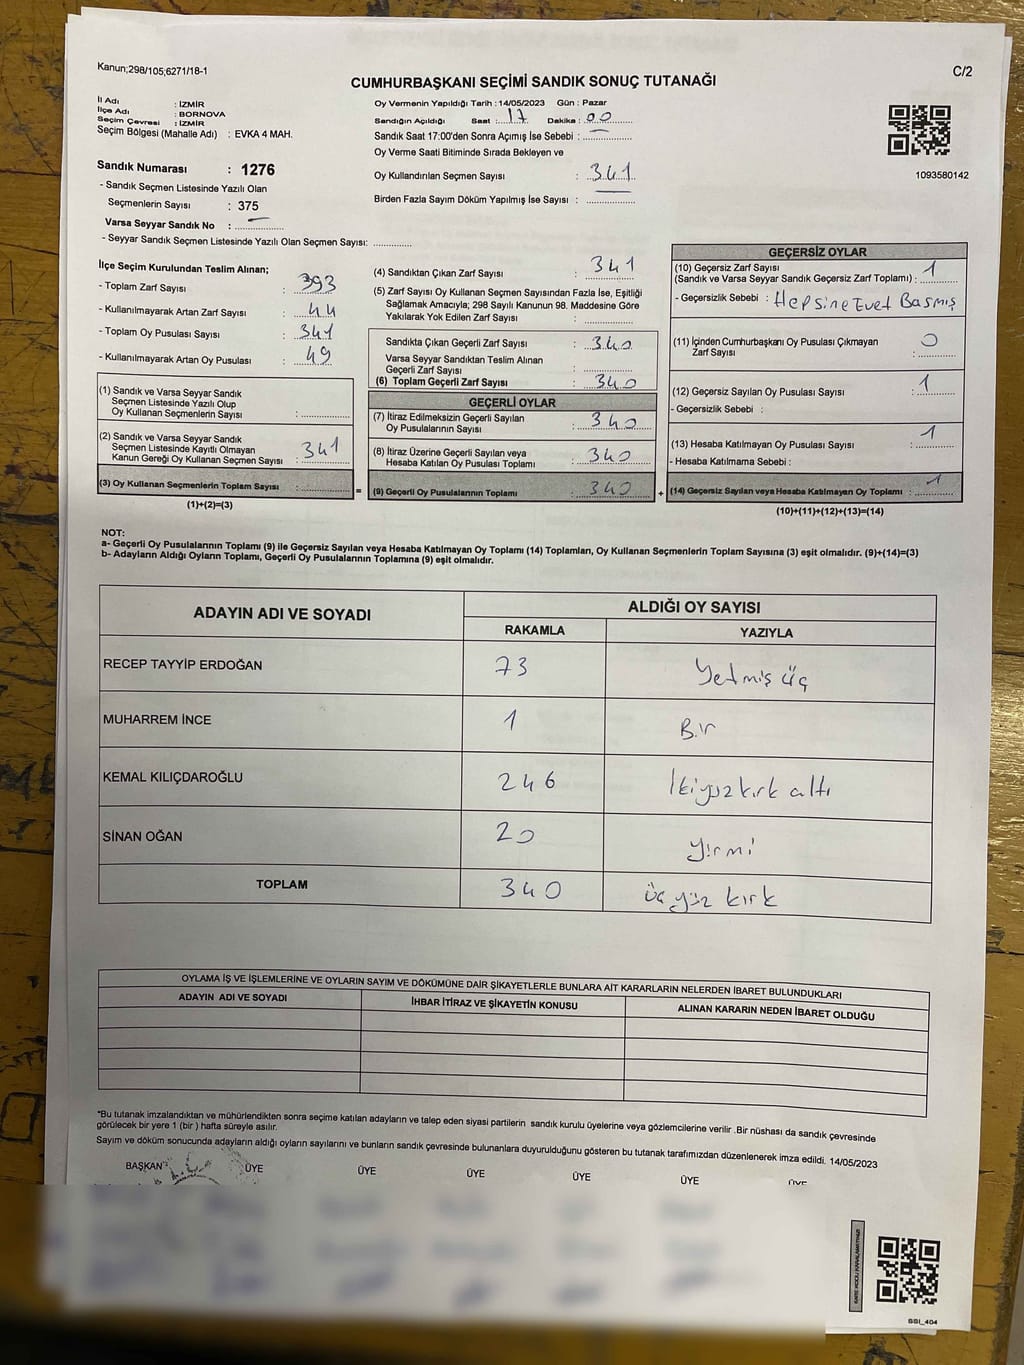 Kanun;298/105;6271/18-1
C/2
CUMHURBAŞKANI SEÇİMİ SANDIK SONUÇ TUTANAĞI
İl Adı : İZMİR
İlçe Adı : BORNOVA
Seçim Çevresi : İZMİR
Seçim Bölgesi (Mahalle Adı) : EVKA 4 MAH.
Oy Vermenin Yapıldığı Tarih : 14/05/2023 Gün : Pazar
Sandığın Açıldığı Saat : 17 Dakika : 00
Sandık Saat 17:00'den Sonra Açımış İse Sebebi :
Oy Verme Saati Bitiminde Sırada Bekleyen ve
Oy Kullandırılan Seçmen Sayısı : 341
Birden Fazla Sayım Döküm Yapılmış İse Sayısı :
1093580142
Sandık Numarası : 1276
- Sandık Seçmen Listesinde Yazılı Olan
Seçmenlerin Sayısı : 375
Varsa Seyyar Sandık No :
- Seyyar Sandık Seçmen Listesinde Yazılı Olan Seçmen Sayısı:
İlçe Seçim Kurulundan Teslim Alınan;
- Toplam Zarf Sayısı : 393
- Kullanılmayarak Artan Zarf Sayısı : 44
- Toplam Oy Pusulası Sayısı : 341
- Kullanılmayarak Artan Oy Pusulası : 49
(1) Sandık ve Varsa Seyyar Sandık
Seçmen Listesinde Yazılı Olup
Oy Kullanan Seçmenlerin Sayısı :
(2) Sandık ve Varsa Seyyar Sandık
Seçmen Listesinde Kayıtlı Olmayan
Kanun Gereği Oy Kullanan Seçmen Sayısı : 341
(3) Oy Kullanan Seçmenlerin Toplam Sayısı :
(1)+(2)=(3)
=
(4) Sandıktan Çıkan Zarf Sayısı : 341
(5) Zarf Sayısı Oy Kullanan Seçmen Sayısından Fazla İse, Eşitliği
Sağlamak Amacıyla; 298 Sayılı Kanunun 98. Maddesine Göre
Yakılarak Yok Edilen Zarf Sayısı :
Sandıkta Çıkan Geçerli Zarf Sayısı : 340
Varsa Seyyar Sandıktan Teslim Alınan
Geçerli Zarf Sayısı :
(6) Toplam Geçerli Zarf Sayısı : 340
GEÇERLİ OYLAR
(7) İtiraz Edilmeksizin Geçerli Sayılan
Oy Pusulalarının Sayısı : 340
(8) İtiraz Üzerine Geçerli Sayılan veya
Hesaba Katılan Oy Pusulası Toplamı : 340
(9) Geçerli Oy Pusulalarının Toplamı : 340
+
GEÇERSİZ OYLAR
(10) Geçersiz Zarf Sayısı
(Sandık ve Varsa Seyyar Sandık Geçersiz Zarf Toplamı) : 1
- Geçersizlik Sebebi : Hepsine Evet Basmış
(11) İçinden Cumhurbaşkanı Oy Pusulası Çıkmayan
Zarf Sayısı : 0
(12) Geçersiz Sayılan Oy Pusulası Sayısı : 1
- Geçersizlik Sebebi :
(13) Hesaba Katılmayan Oy Pusulası Sayısı : 1
- Hesaba Katılmama Sebebi :
(14) Geçersiz Sayılan veya Hesaba Katılmayan Oy Toplamı : 1
(10)+(11)+(12)+(13)=(14)
NOT:
a- Geçerli Oy Pusulalarının Toplamı (9) ile Geçersiz Sayılan veya Hesaba Katılmayan Oy Toplamı (14) Toplamları, Oy Kullanan Seçmenlerin Toplam Sayısına (3) eşit olmalıdır. (9)+(14)=(3)
b- Adayların Aldığı Oyların Toplamı, Geçerli Oy Pusulalarının Toplamına (9) eşit olmalıdır.
ADAYIN ADI VE SOYADI
ALDIĞI OY SAYISI
RAKAMLA YAZIYLA
RECEP TAYYİP ERDOĞAN 73 Yetmiş üç
MUHARREM İNCE 1 Bir
KEMAL KILIÇDAROĞLU 246 İkiyüzkırk altı
SİNAN OĞAN 20 Yirmi
TOPLAM 340 üçyüz kırk
OYLAMA İŞ VE İŞLEMLERİNE VE OYLARIN SAYIM VE DÖKÜMÜNE DAİR ŞİKAYETLERLE BUNLARA AİT KARARLARIN NELERDEN İBARET BULUNDUKLARI
ADAYIN ADI VE SOYADI İHBAR İTİRAZ VE ŞİKAYETİN KONUSU ALINAN KARARIN NEDEN İBARET OLDUĞU
*Bu tutanak imzalandıktan ve mühürlendikten sonra seçime katılan adayların ve talep eden siyasi partilerin sandık kurulu üyelerine veya gözlemcilerine verilir .Bir nüshası da sandık çevresinde
görülecek bir yere 1 (bir ) hafta süreyle asılır.
Sayım ve döküm sonucunda adayların aldığı oyların sayılarını ve bunların sandık çevresinde bulunanlara duyurulduğunu gösteren bu tutanak tarafımızdan düzenlenerek imza edildi. 14/05/2023
BAŞKAN ÜYE ÜYE ÜYE ÜYE ÜYE ÜYE
SSI_404